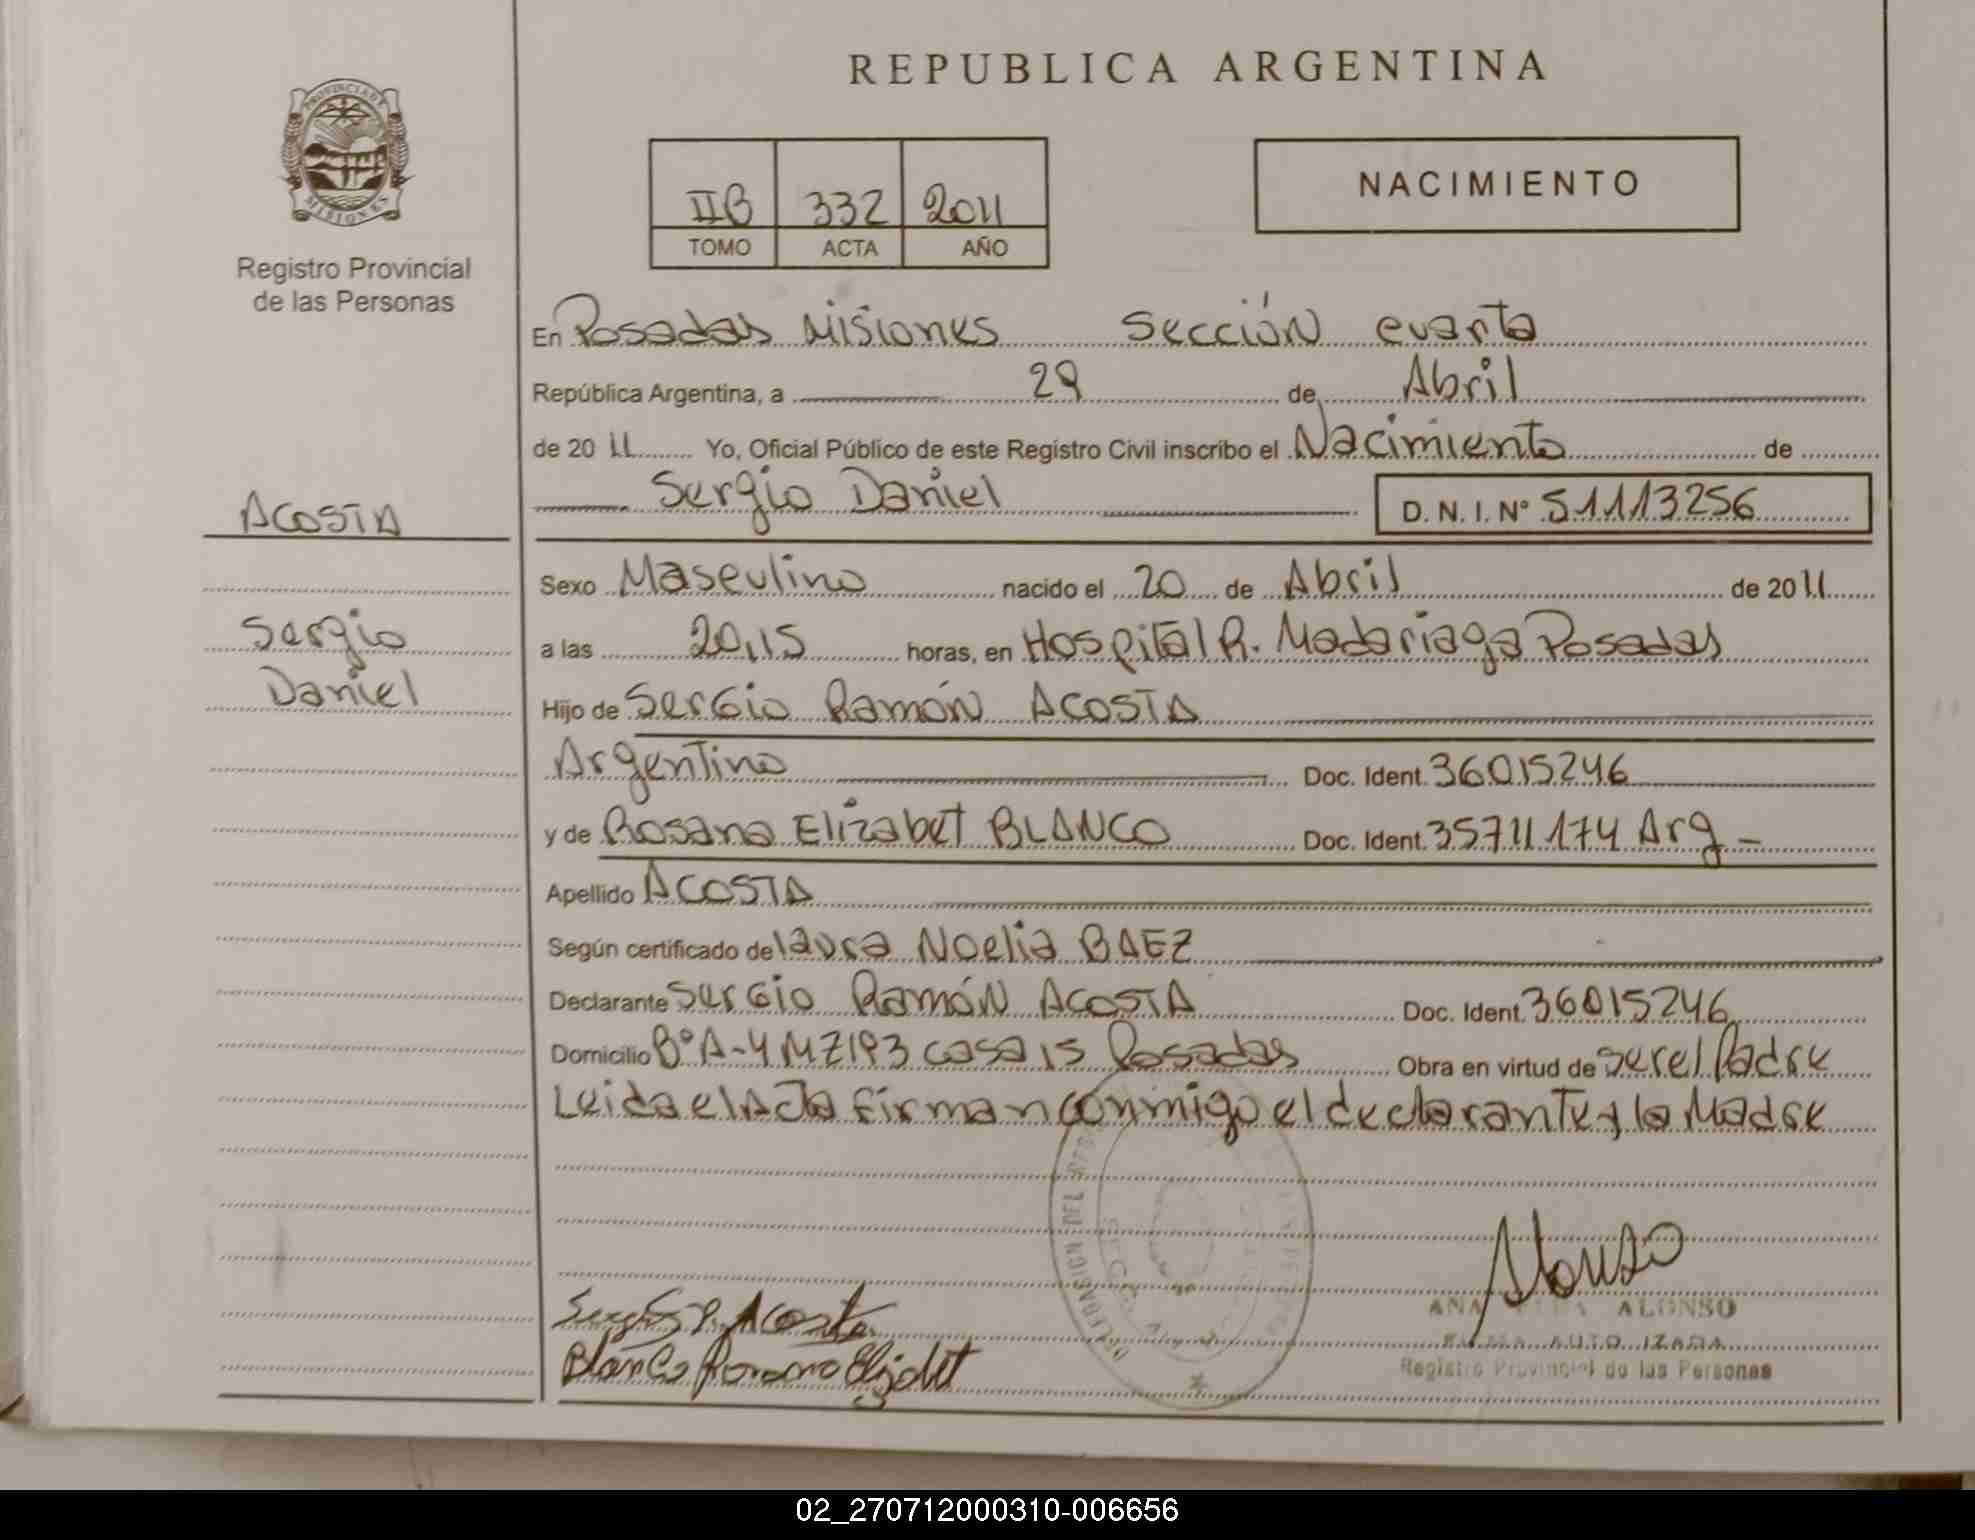 REPUBLICA ARGENTINA
PROVINCIA DE
MISIONES
Registro Provincial
de las Personas
IIB 332 2011
TOMO ACTA AÑO
NACIMIENTO
En Posadas Misiones Sección cuarta
República Argentina, a 29 de Abril
de 2011 Yo, Oficial Público de este Registro Civil inscribo el Nacimiento de
Sergio Daniel D. N. I. Nº 51113256
ACOSTA
Sergio
Daniel
Sexo Masculino nacido el 20 de Abril de 2011
a las 20,15 horas, en Hospital R. Madariaga Posadas
Hijo de Sergio Ramón ACOSTA
Argentino Doc. Ident. 36015246
y de Rosana Elizabet BLANCO Doc. Ident. 35711174 Arg -
Apellido ACOSTA
Según certificado de laura Noelia BAEZ
Declarante Sergio Ramón ACOSTA Doc. Ident. 36015246
Domicilio Bº A-4 MZ193 casa 15 Posadas Obra en virtud de ser el Padre
Leida el Acta firman conmigo el declarante y la Madre
DELEGACION DEL
Sergio R. Acosta
Blanco Rosana Elizabet
Alonso
ANA ALONSO
Registro Provincial de las Personas
02_270712000310-006656